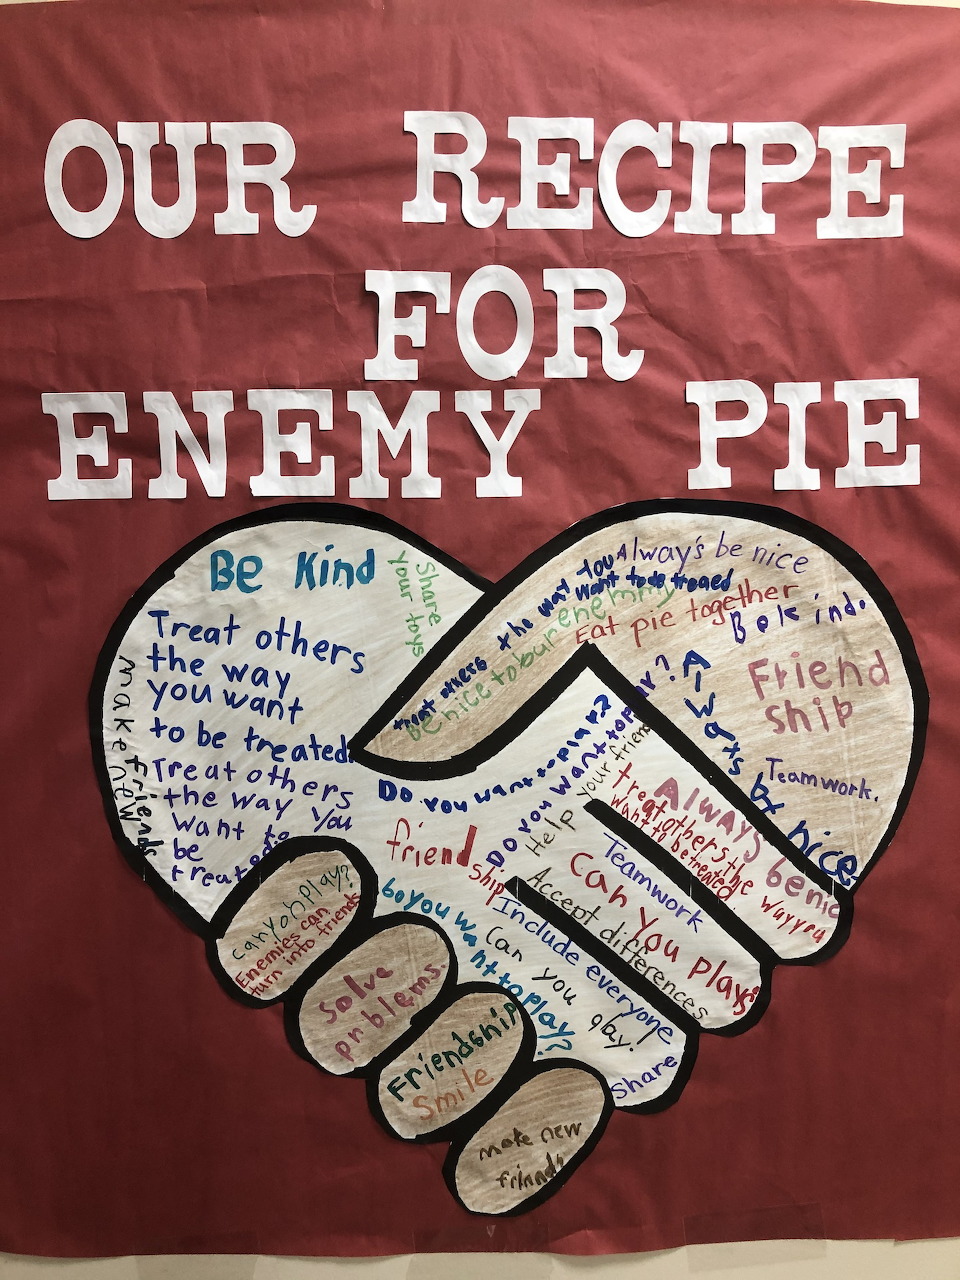 OUR RECIPE
FOR
ENEMY PIE
Be Kind
Share
your toys
Treat others
the way
you want
to be treated.
Treat others
the way you
want to
be
treated.
make new friends
treat others the way you
want to be treaed
Be nice to our enemmy
Always be nice
Eat pie together
Be kind.
Friend
ship
Always be nice
Teamwork.
Do you want to play?
Do you want to play?
Help your friend
friend
ship
Treat others the way you
want to be treated
Always be nic
Teamwork
Can You plays?
Accept differences
Include everyone
Share
Do you want to play?
Can you play.
can yoh play?
Enemies can
turn into friends
Solve
prblems.
Friendship
Smile
make new
frinnds